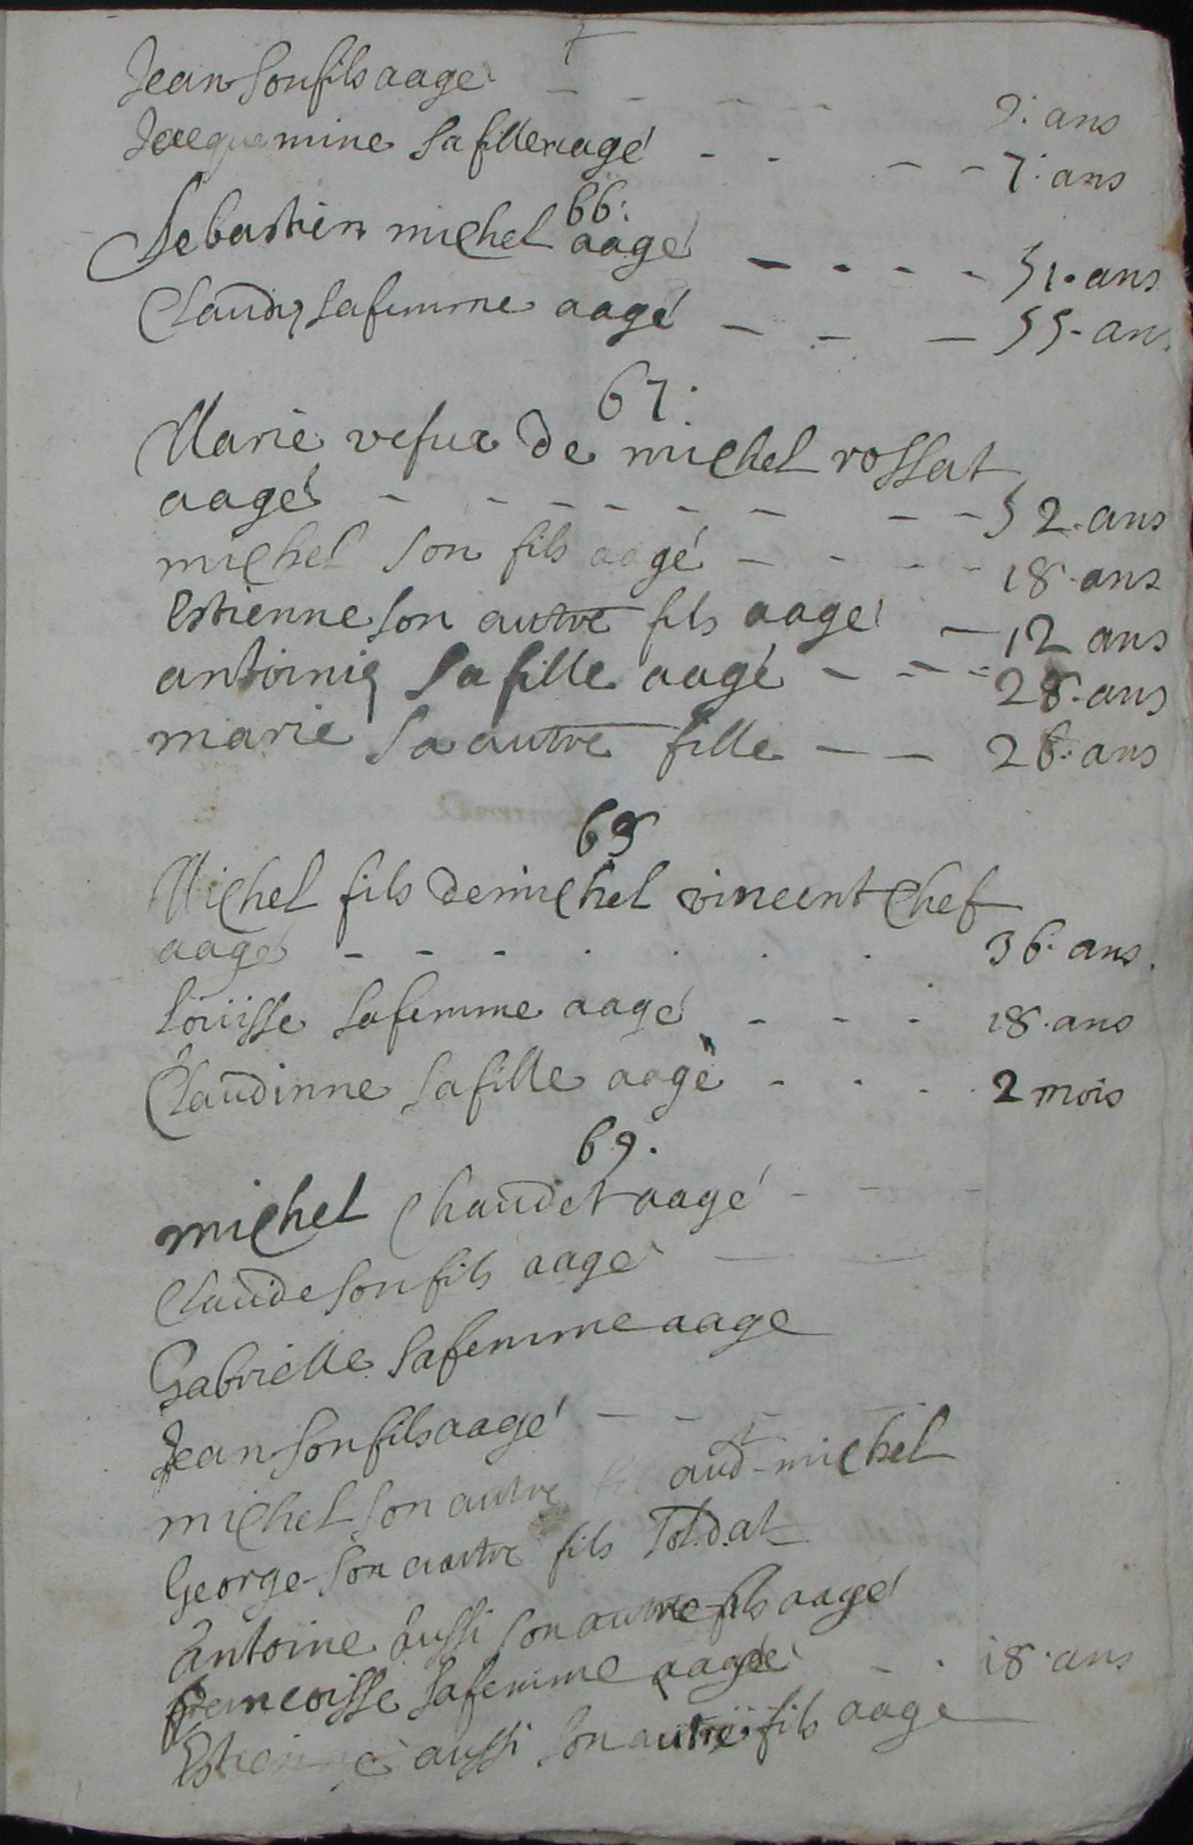 Jean son fils aagé - - - - 9. ans
Jacquemine sa fille aagé - - - - 7. ans
66.
Sebastien michel aagé - - - - 51. ans
Claudą sa femme aagé - - - 55. ans
67.
Marie vefue de michel rossat
aagé - - - - - - - - 52. ans
michel son fils aagé - - - - 18. ans
Estienne son autre fils aagé - 12 ans
antoinią sa fille aagé - - - 28. ans
marie sa autre fille - - 26. ans
68
Michel fils de michel vincent Chef
aagé - - - . . . . 36. ans.
Louisse sa femme aagé - - - 18. ans
Claudinne sa fille aagé - . . . 2 mois
69.
michel Chaudet aagé - - -
Claude son fils aagé - -
Gabrielle sa femme aage
Jean son fils aagé - - - -
michel son autre aud michel
George son autre fils soldat
Antoine aussi son autre fils aagé
francoisse sa femme aagée - . 18. ans
Estienne aussi son autre fils aage